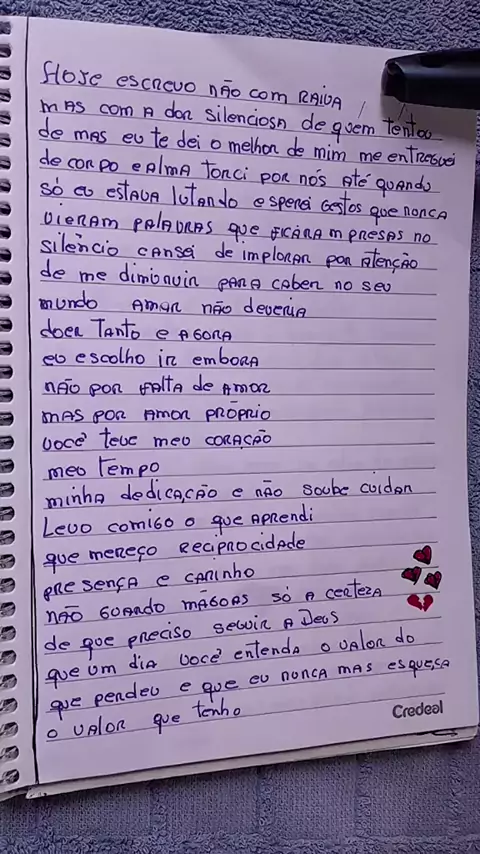 Hoje escrevo não com RAIVA
mas com A dor silenciosa de quem tentou
de mas eu te dei o melhor de mim me entreguei
de corpo e Alma torci por nós Até quando
só eu estava lutando esperei gestos que nunca
vieram palavras que ficáram presas no
silêncio cansei de implorar por atenção
de me diminuir para caber no seu
mundo Amar não deveria
doer Tanto e Agora
eu escolho ir embora
não por falta de amor
mas por Amor próprio
você teve meu coração
meu tempo
minha dedicação e não soube cuidar
Levo comigo o que aprendi
que mereço reciprocidade
presença e carinho
não guardo mágoas só a certeza
de que preciso seguir A Deus
que um dia você entenda o valor do
que perdeu e que eu nunca mas esqueça
o valor que tenho
Credeal